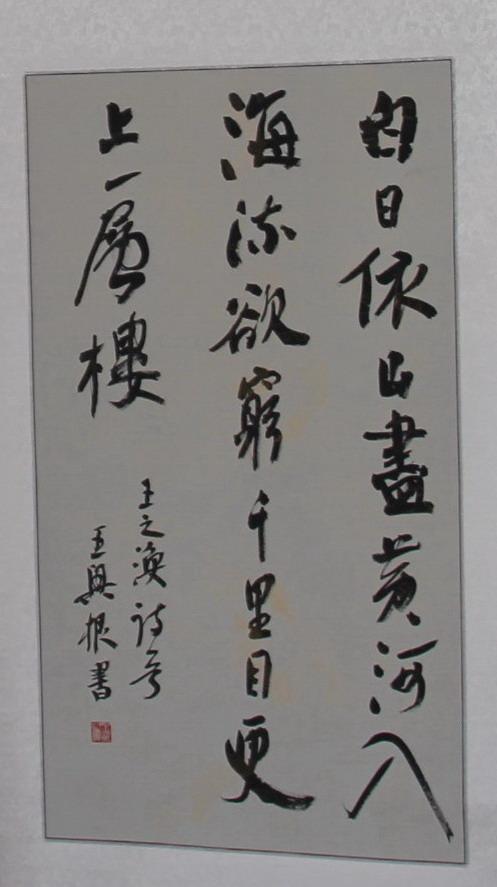 白日依山盡黄河入
海流欲窮千里目更
上一層樓
王之渙詩意
王興根書